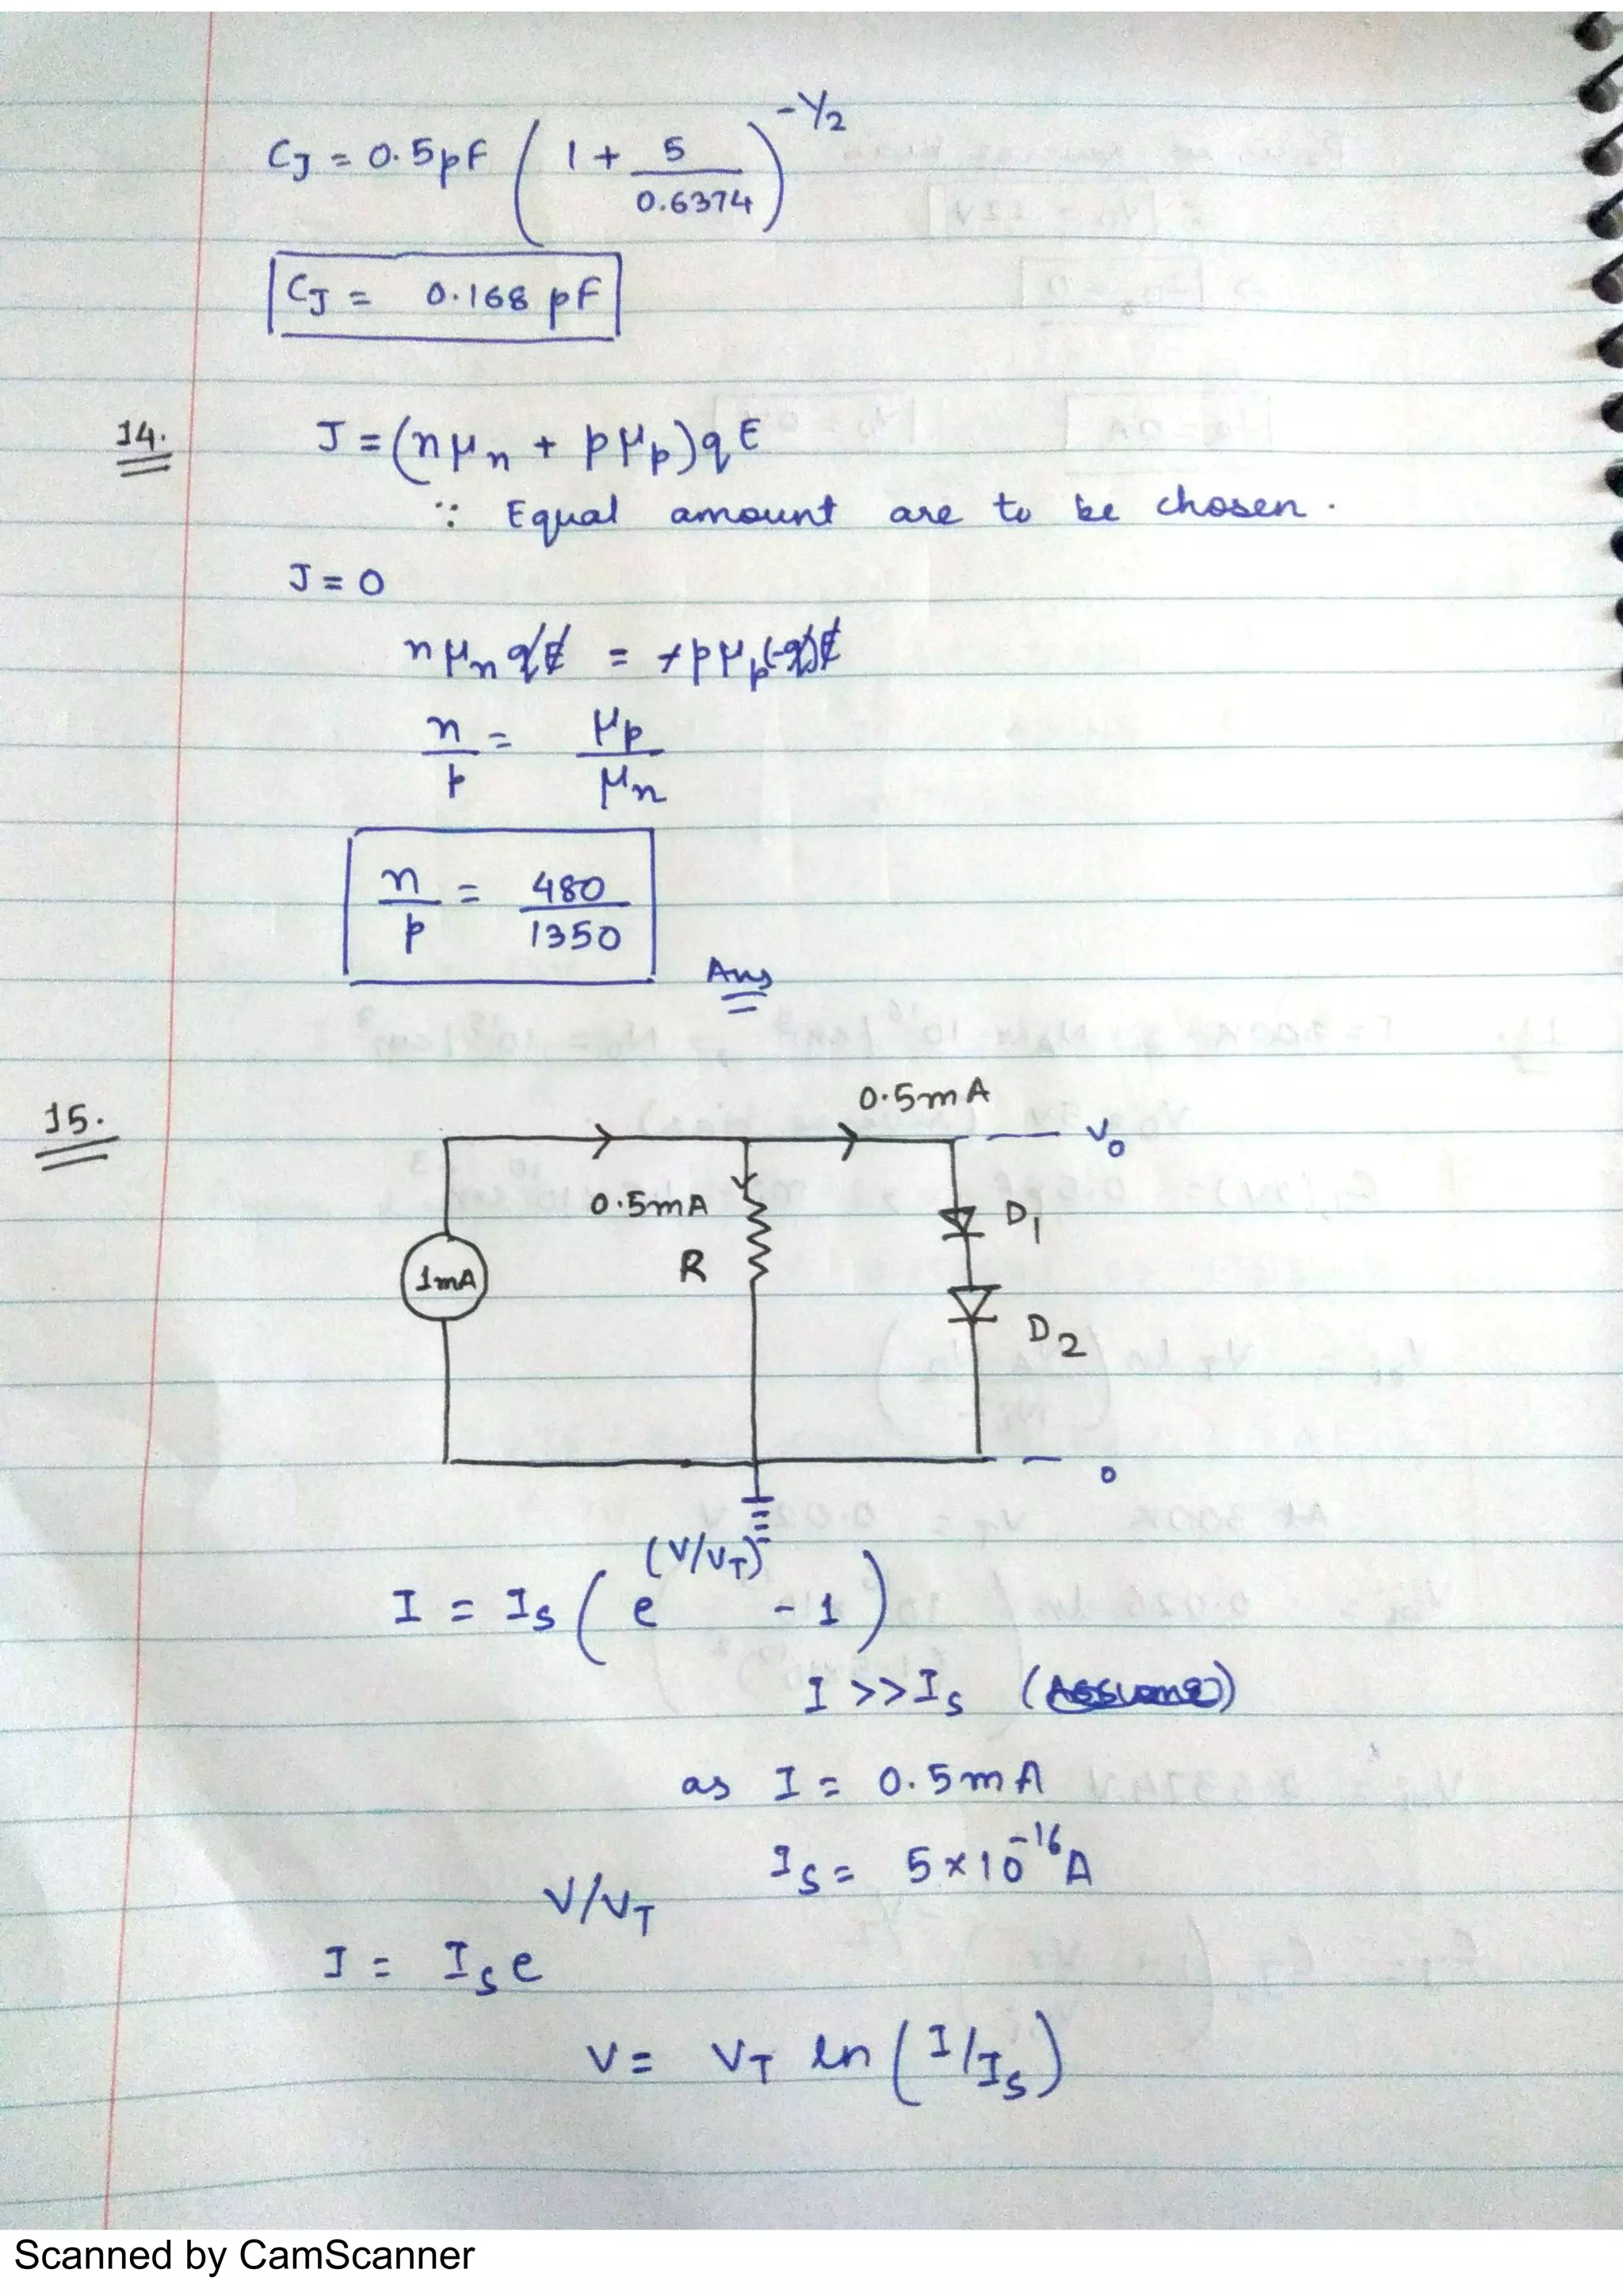 C_J = 0.5pF ( 1 + 5/0.6374 )^(-1/2)
C_J = 0.168 pF
14. J = (nμ_n + pμ_p)qE
∵ Equal amount are to be chosen.
J = 0
nμ_n qE = +pμ_p(-q)E
n/p = μ_p/μ_n
n/p = 480/1350
Ans
15.
0.5mA
V_0
0.5mA
R
D_1
1mA
D_2
0
I = I_s ( e^(V/V_T) - 1 )
I >> I_s (Assume)
as I = 0.5mA
I_s = 5×10^-16 A
I = I_s e^V/V_T
V = V_T ln ( I/I_s )
Scanned by CamScanner